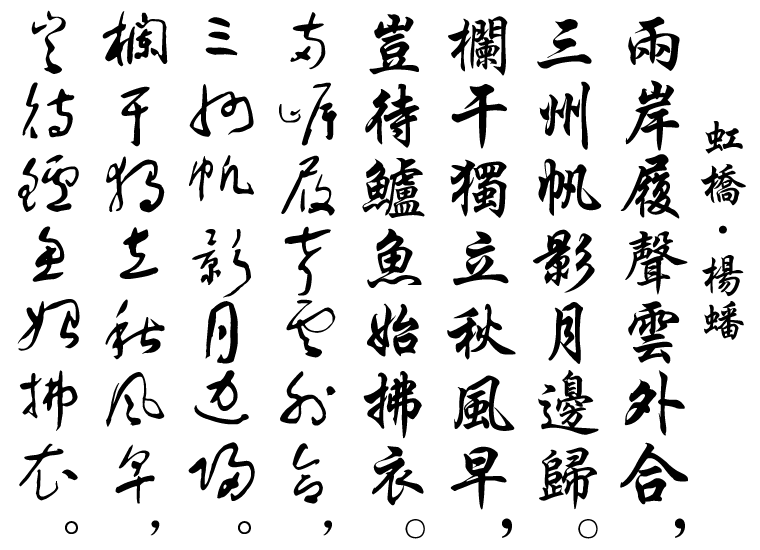 虹橋·楊蟠
兩岸履聲雲外合，
三州帆影月邊歸。
欄干獨立秋風早，
豈待鱸魚始拂衣。
兩岸履聲雲外合，
三州帆影月邊歸。
欄干獨立秋風早，
豈待鱸魚始拂衣。